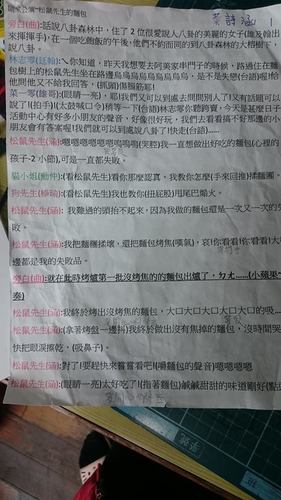 期末公演"松鼠先生的麵包
葉詩涵 1
旁白(曲):話說八卦森林中,住了2位很愛說人八卦的美麗的女子(雄及翰出
來揮揮手),在一個吃飽飯的午後,他們不約而同的到八卦森林的大榕樹下,
說八卦,
林志零(廷翰):ㄟ你知道,昨天我想要去阿美家串門子的時候,路過住在麵
包樹上的松鼠先生坐在路邊烏烏烏烏烏烏烏烏,是不是失戀(台語)喔!給
他問他又不給我回答,(抓頭)傷腦筋耶!
某一零(雄哥):(眼睛一亮),耶!我們又可以到裏去問問別人了!又有話題可以
說了!(拍手)!(太鼓喊口令)稍等一下(台語)林志零你聽夠寶,今天是甚麼日子
活動中心有好多小朋友的聲音,好像很好玩,我們去看看搞不好那邊的小
朋友會有答案喔!我們就可以到處說八卦了!快走(台語)......
松鼠先生(涵):嗯嗯嗯嗯嗯嗚嗚嗚(哭腔)我一直想做出好吃的麵包(心裡的
孩子-2小節),可是一直都失敗。
貓小姐(勳仲):(看松鼠先生)看你那麼認真,我教你怎麼(手來回推)揉麵團。
狗先生(靜瑜):(看松鼠先生)我也教你(扭屁股)甩尾巴煽火。
松鼠先生(涵): 我難過的頭抬不起來,因為我做的麵包還是一次又一次的失
敗。
松鼠先生(涵):我把麵糰揉壞,還把麵包烤焦(嘆氣),哀!你看!你看看!大
邊都是我的失敗品。
旁白(曲):就在此時烤爐第一批沒烤焦的的麵包出爐了,ㄉㄤ......(小蘋果
奏)
松鼠先生(涵):我終於烤出沒烤焦的麵包,大口大口大口大口大口的吸....
松鼠先生(涵):(拿著烤盤一邊抖)我終於做出沒有焦掉的麵包,沒時間哭
快把眼淚擦乾,(吸鼻子)。
松鼠先生(涵):對了!要趕快來嘗嘗看吧!(嚼麵包的聲音)嗯嗯嗯嗯
松鼠先生(涵):(眼睛一亮)太好吃了!(指著麵包)鹹鹹甜甜的味道剛好(點